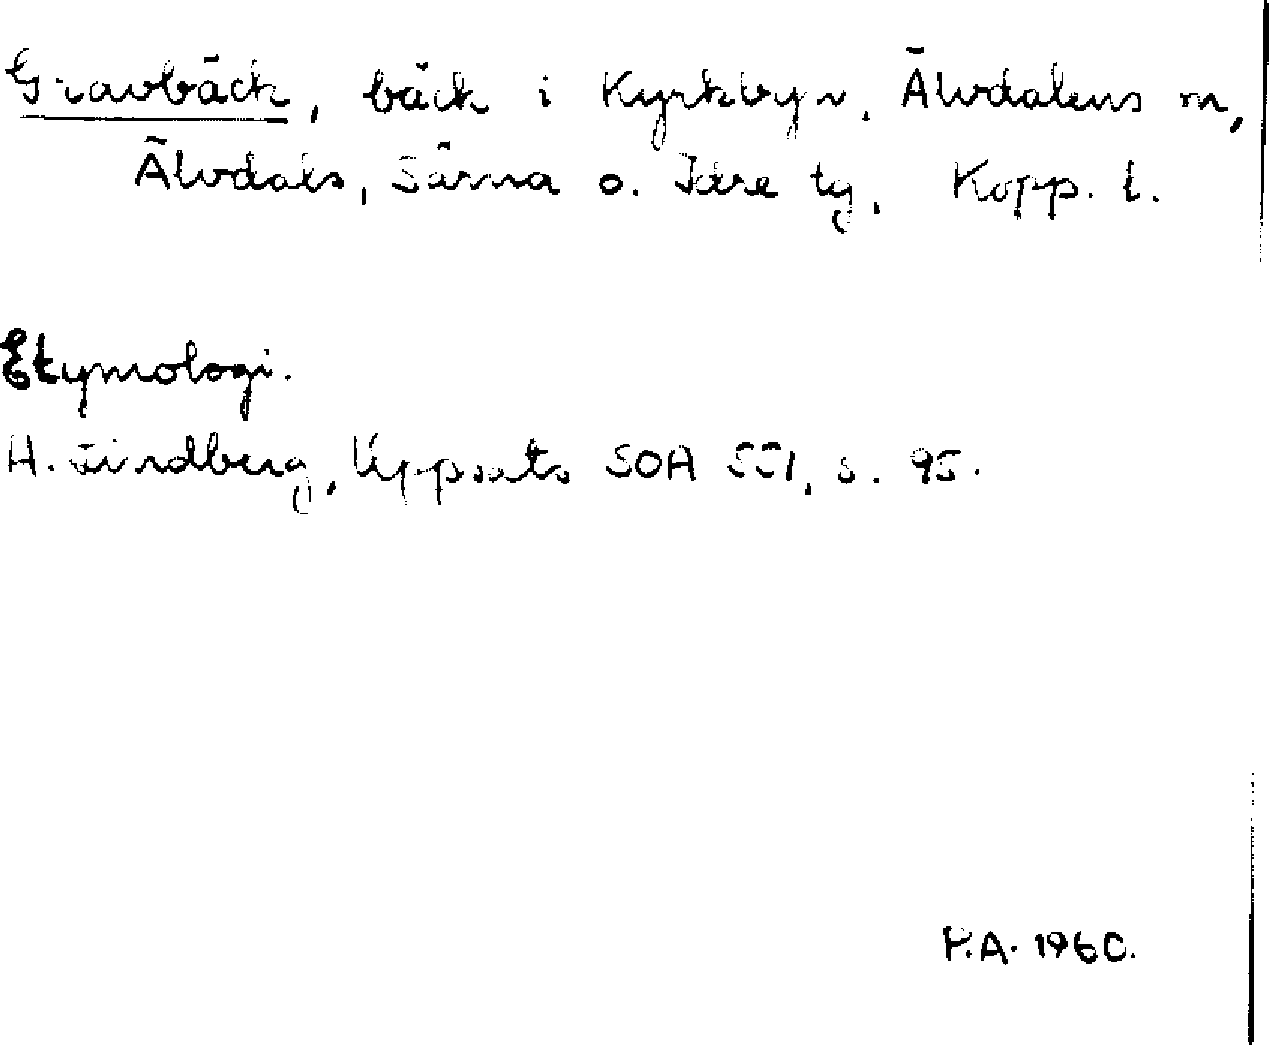 Gravbäck, bäck i Kyrkbyn, Älvdalens m,
Älvdals, Särna o. Idre tg, Kopp. l.
Etymologi.
H. Lindberg, Uppsats SOA 551, s. 95.
P.A. 1960.